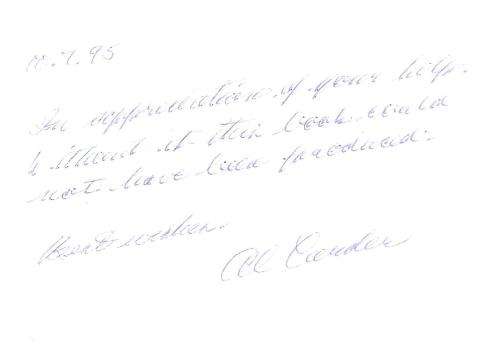 .7.95
In appreciation of your help.
Without it this book could
not have been produced.
Best wishes.